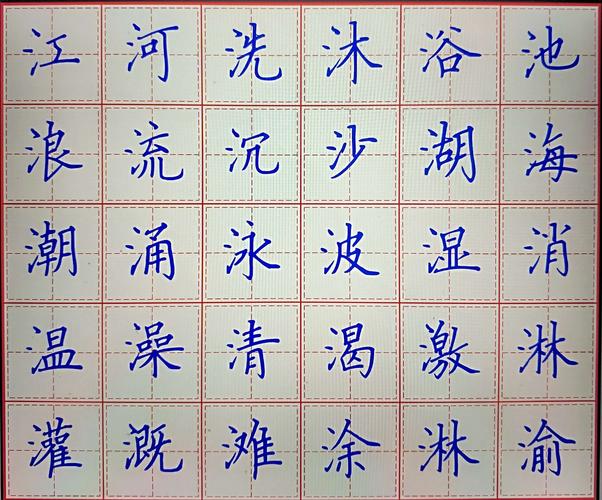 江河洗沐浴池
浪流沉沙湖海
潮涌泳波湿消
温澡清渴激淋
灌溉滩涂淋渝